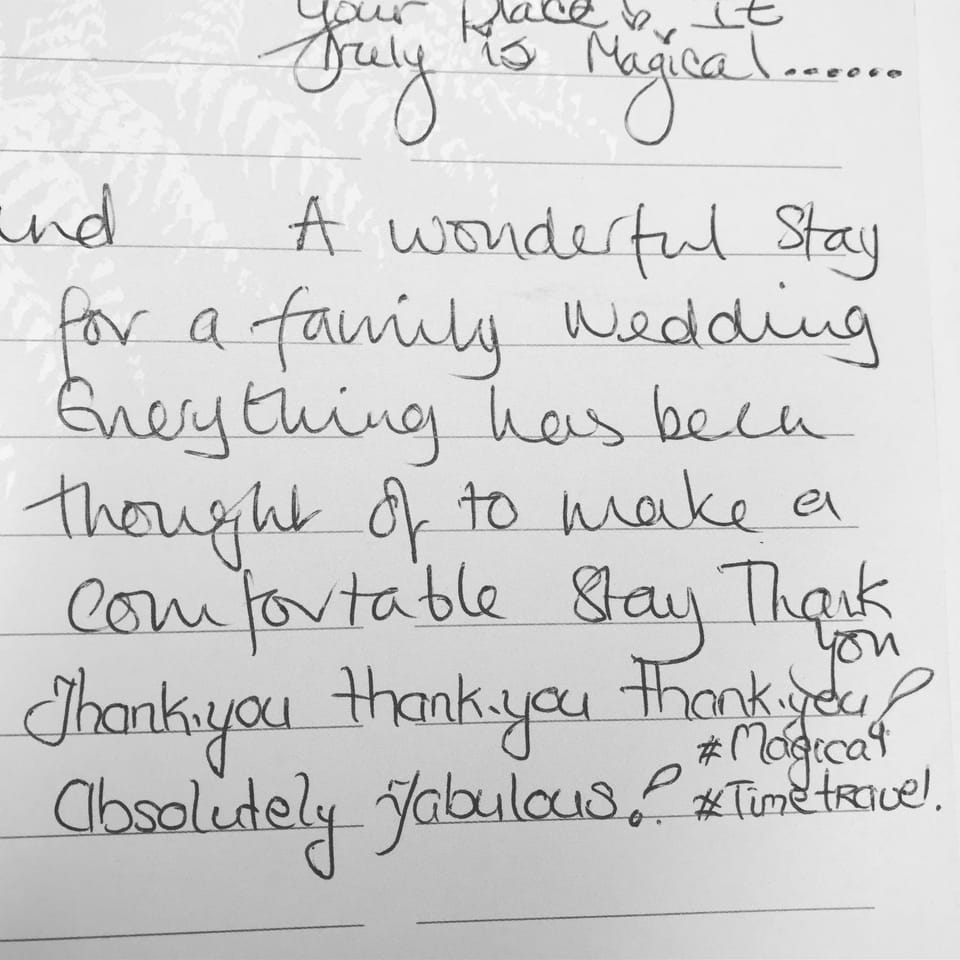 your place & It
Truly is Magical.......
and A wonderful Stay
for a family wedding
Everything has been
thought of to make a
comfortable Stay Thank
you
Thank.you thank.you thank.you!
#Magical
Absolutely fabulous! #Timetravel.